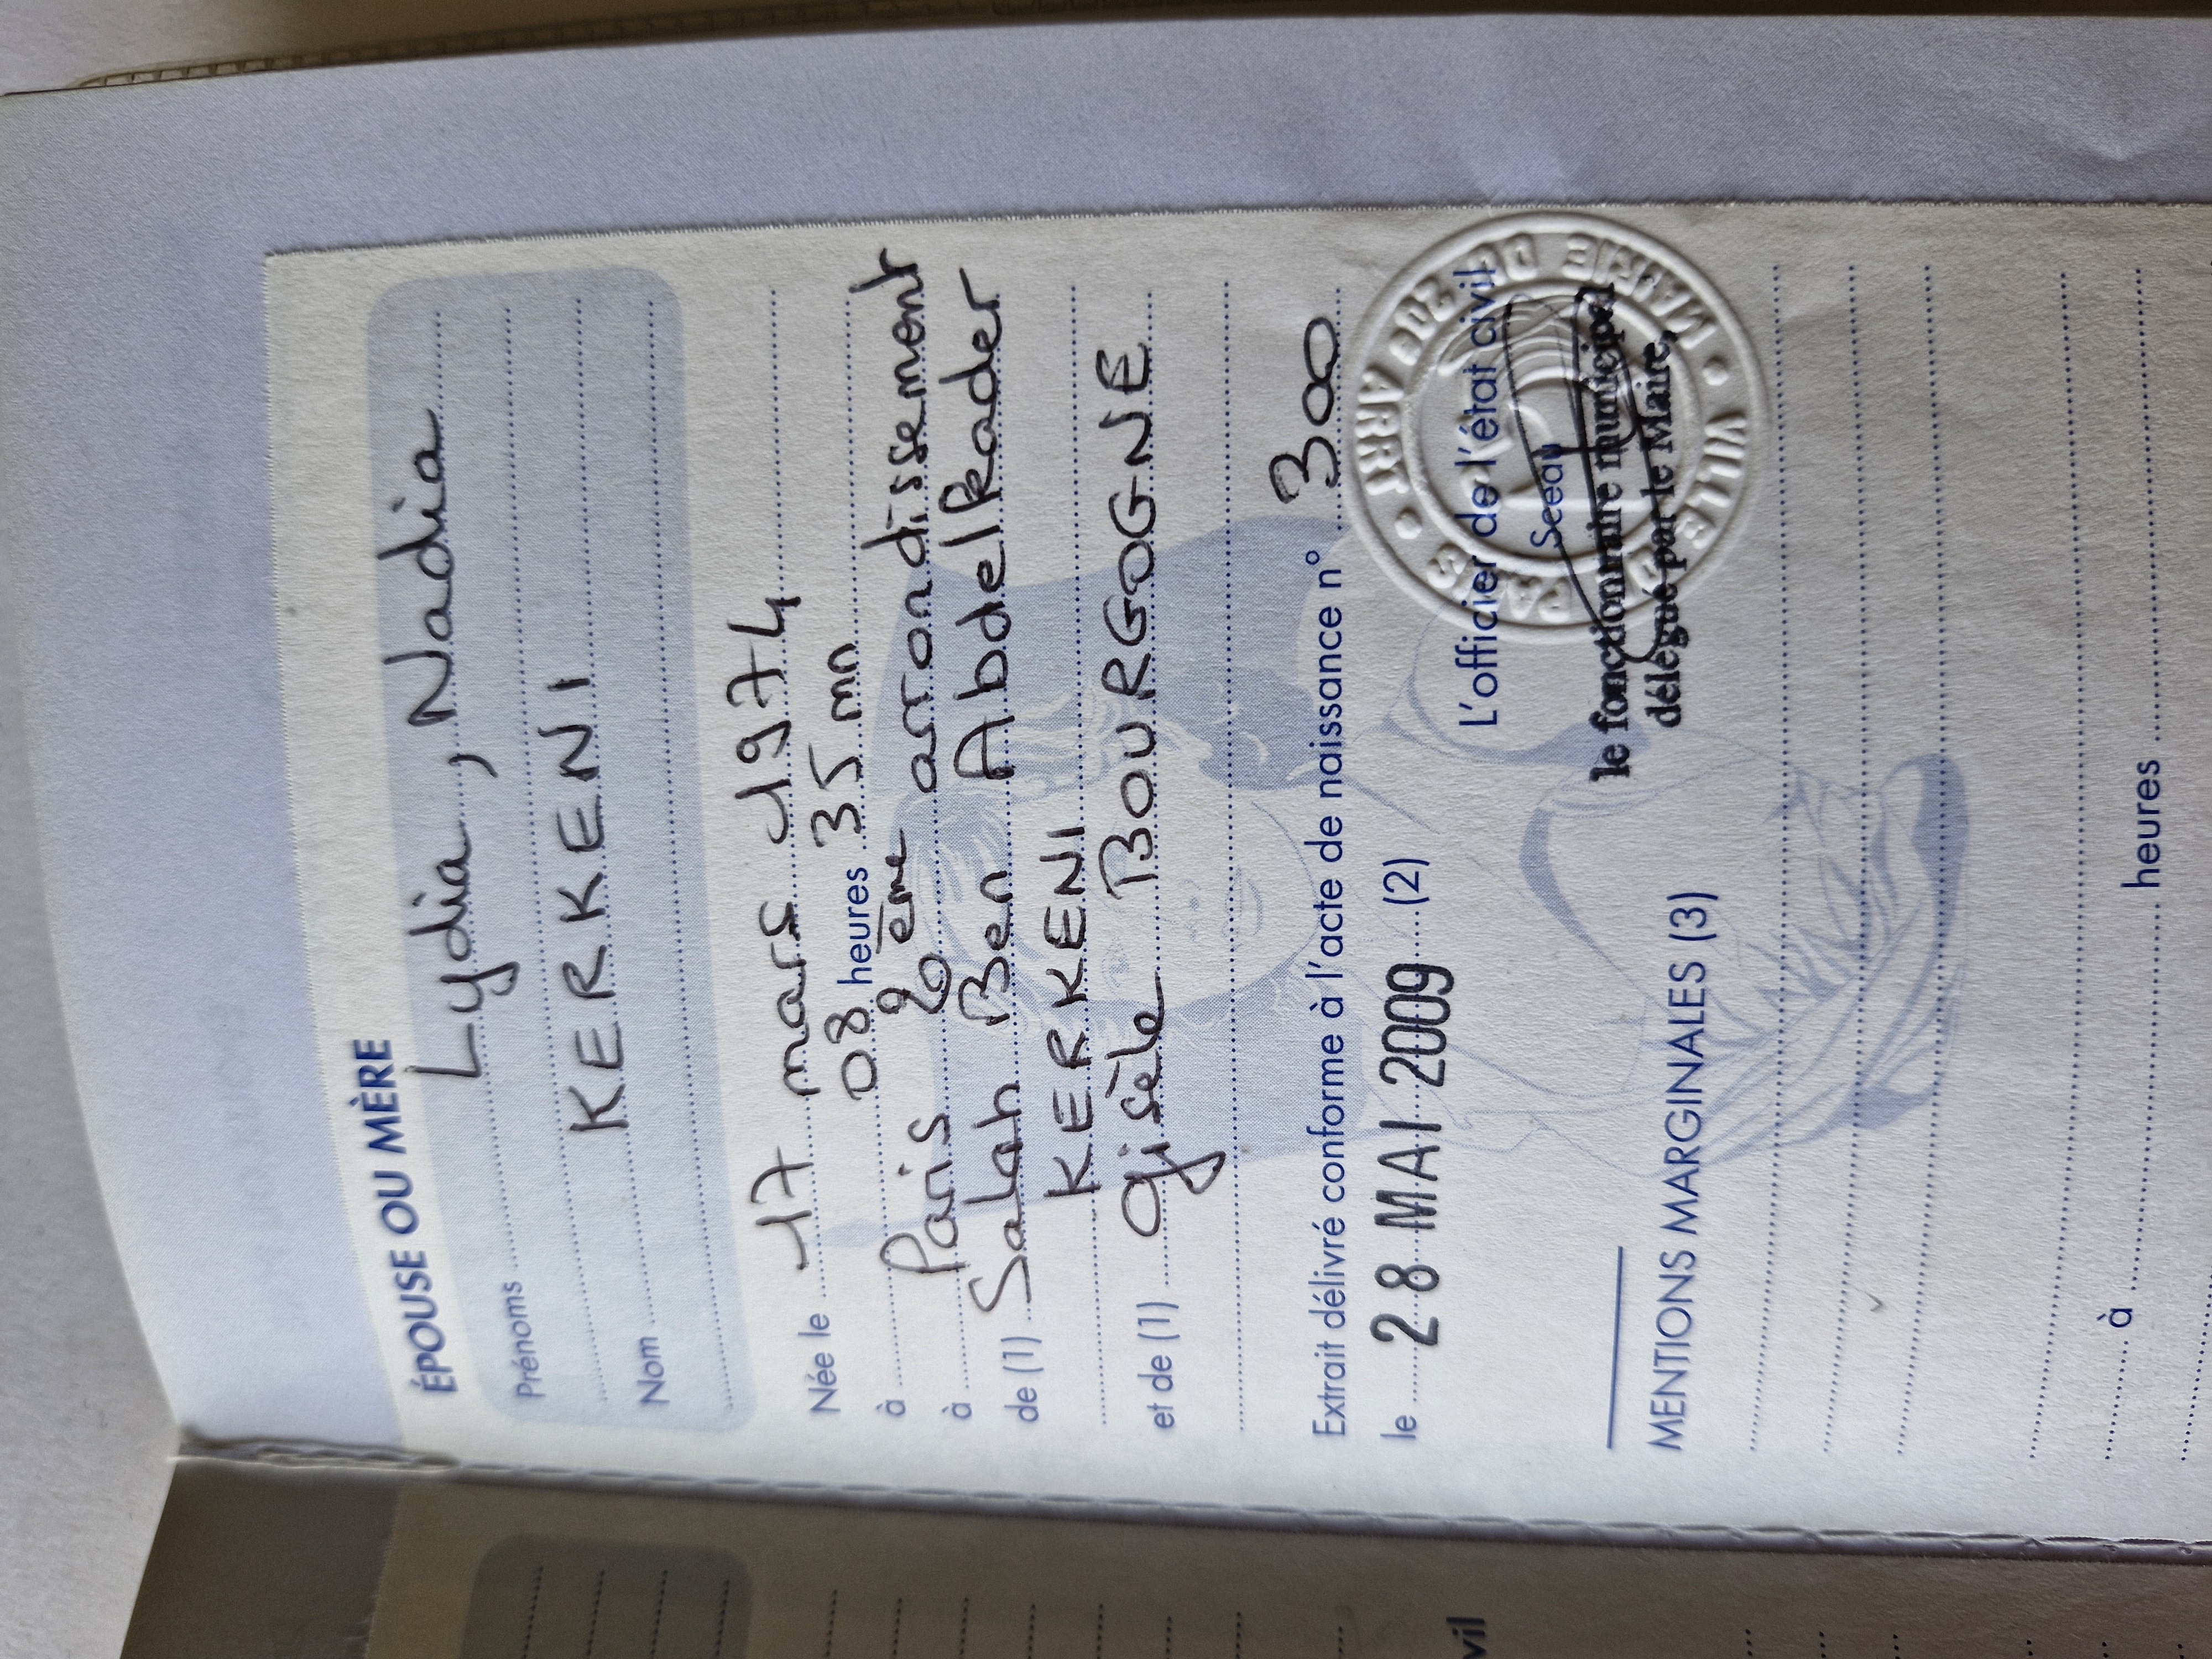 ÉPOUSE OU MÈRE
Prénoms Lydia, Nadia
Nom KERKENI
Née le 17 mars 1974
à 08 heures 35 mn
à Paris 2ème arrondissement
de (1) Salah Ben Abdelkader
KERKENI
et de (1) Gisèle BOURGOGNE
Extrait délivré conforme à l'acte de naissance n° 300
le 28 MAI 2009 (2)
L'officier de l'état civil
Sceau
le fonctionnaire municipal
délégué par le Maire,
VILLE DE PARIS • MAIRIE DU 20e ARRT •
MENTIONS MARGINALES (3)
à heures
vil